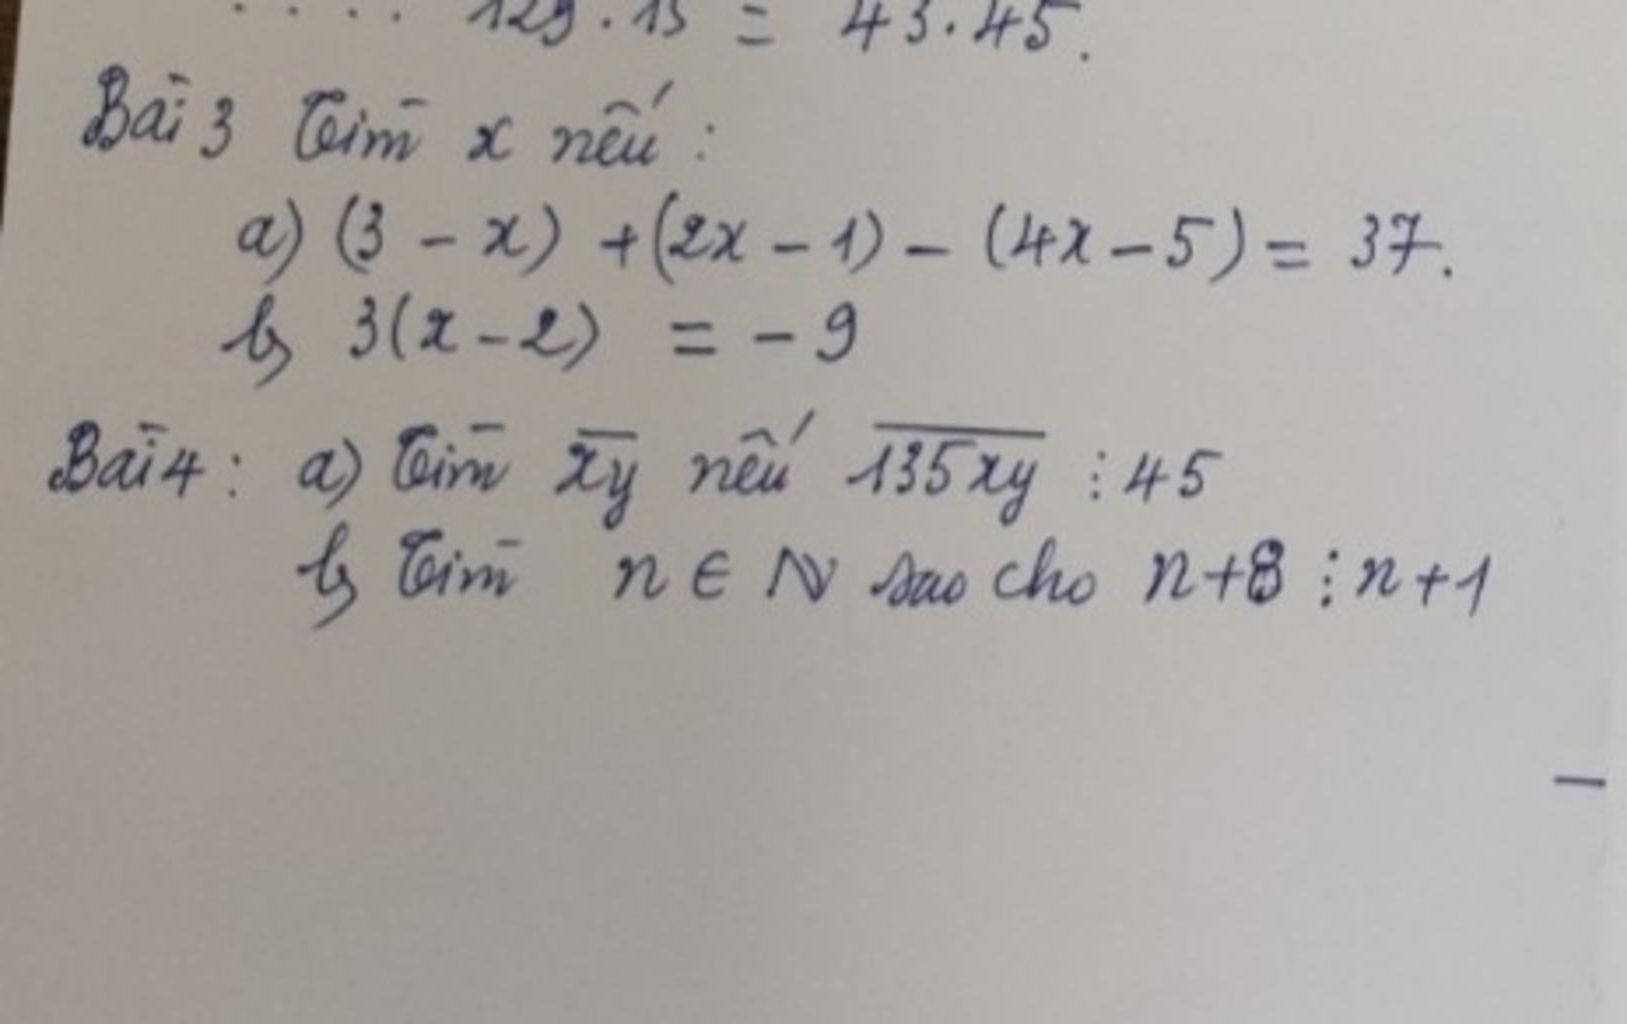 .... 129.15 = 43.45.
Bài 3 Tìm x nếu:
a) (3 - x) + (2x - 1) - (4x - 5) = 37.
b) 3(x - 2) = - 9
Bài 4: a) Tìm x̅y̅ nếu 1̅3̅5̅x̅y̅ ⋮ 45
b) Tìm n ∈ N sao cho n+8 ⋮ n+1